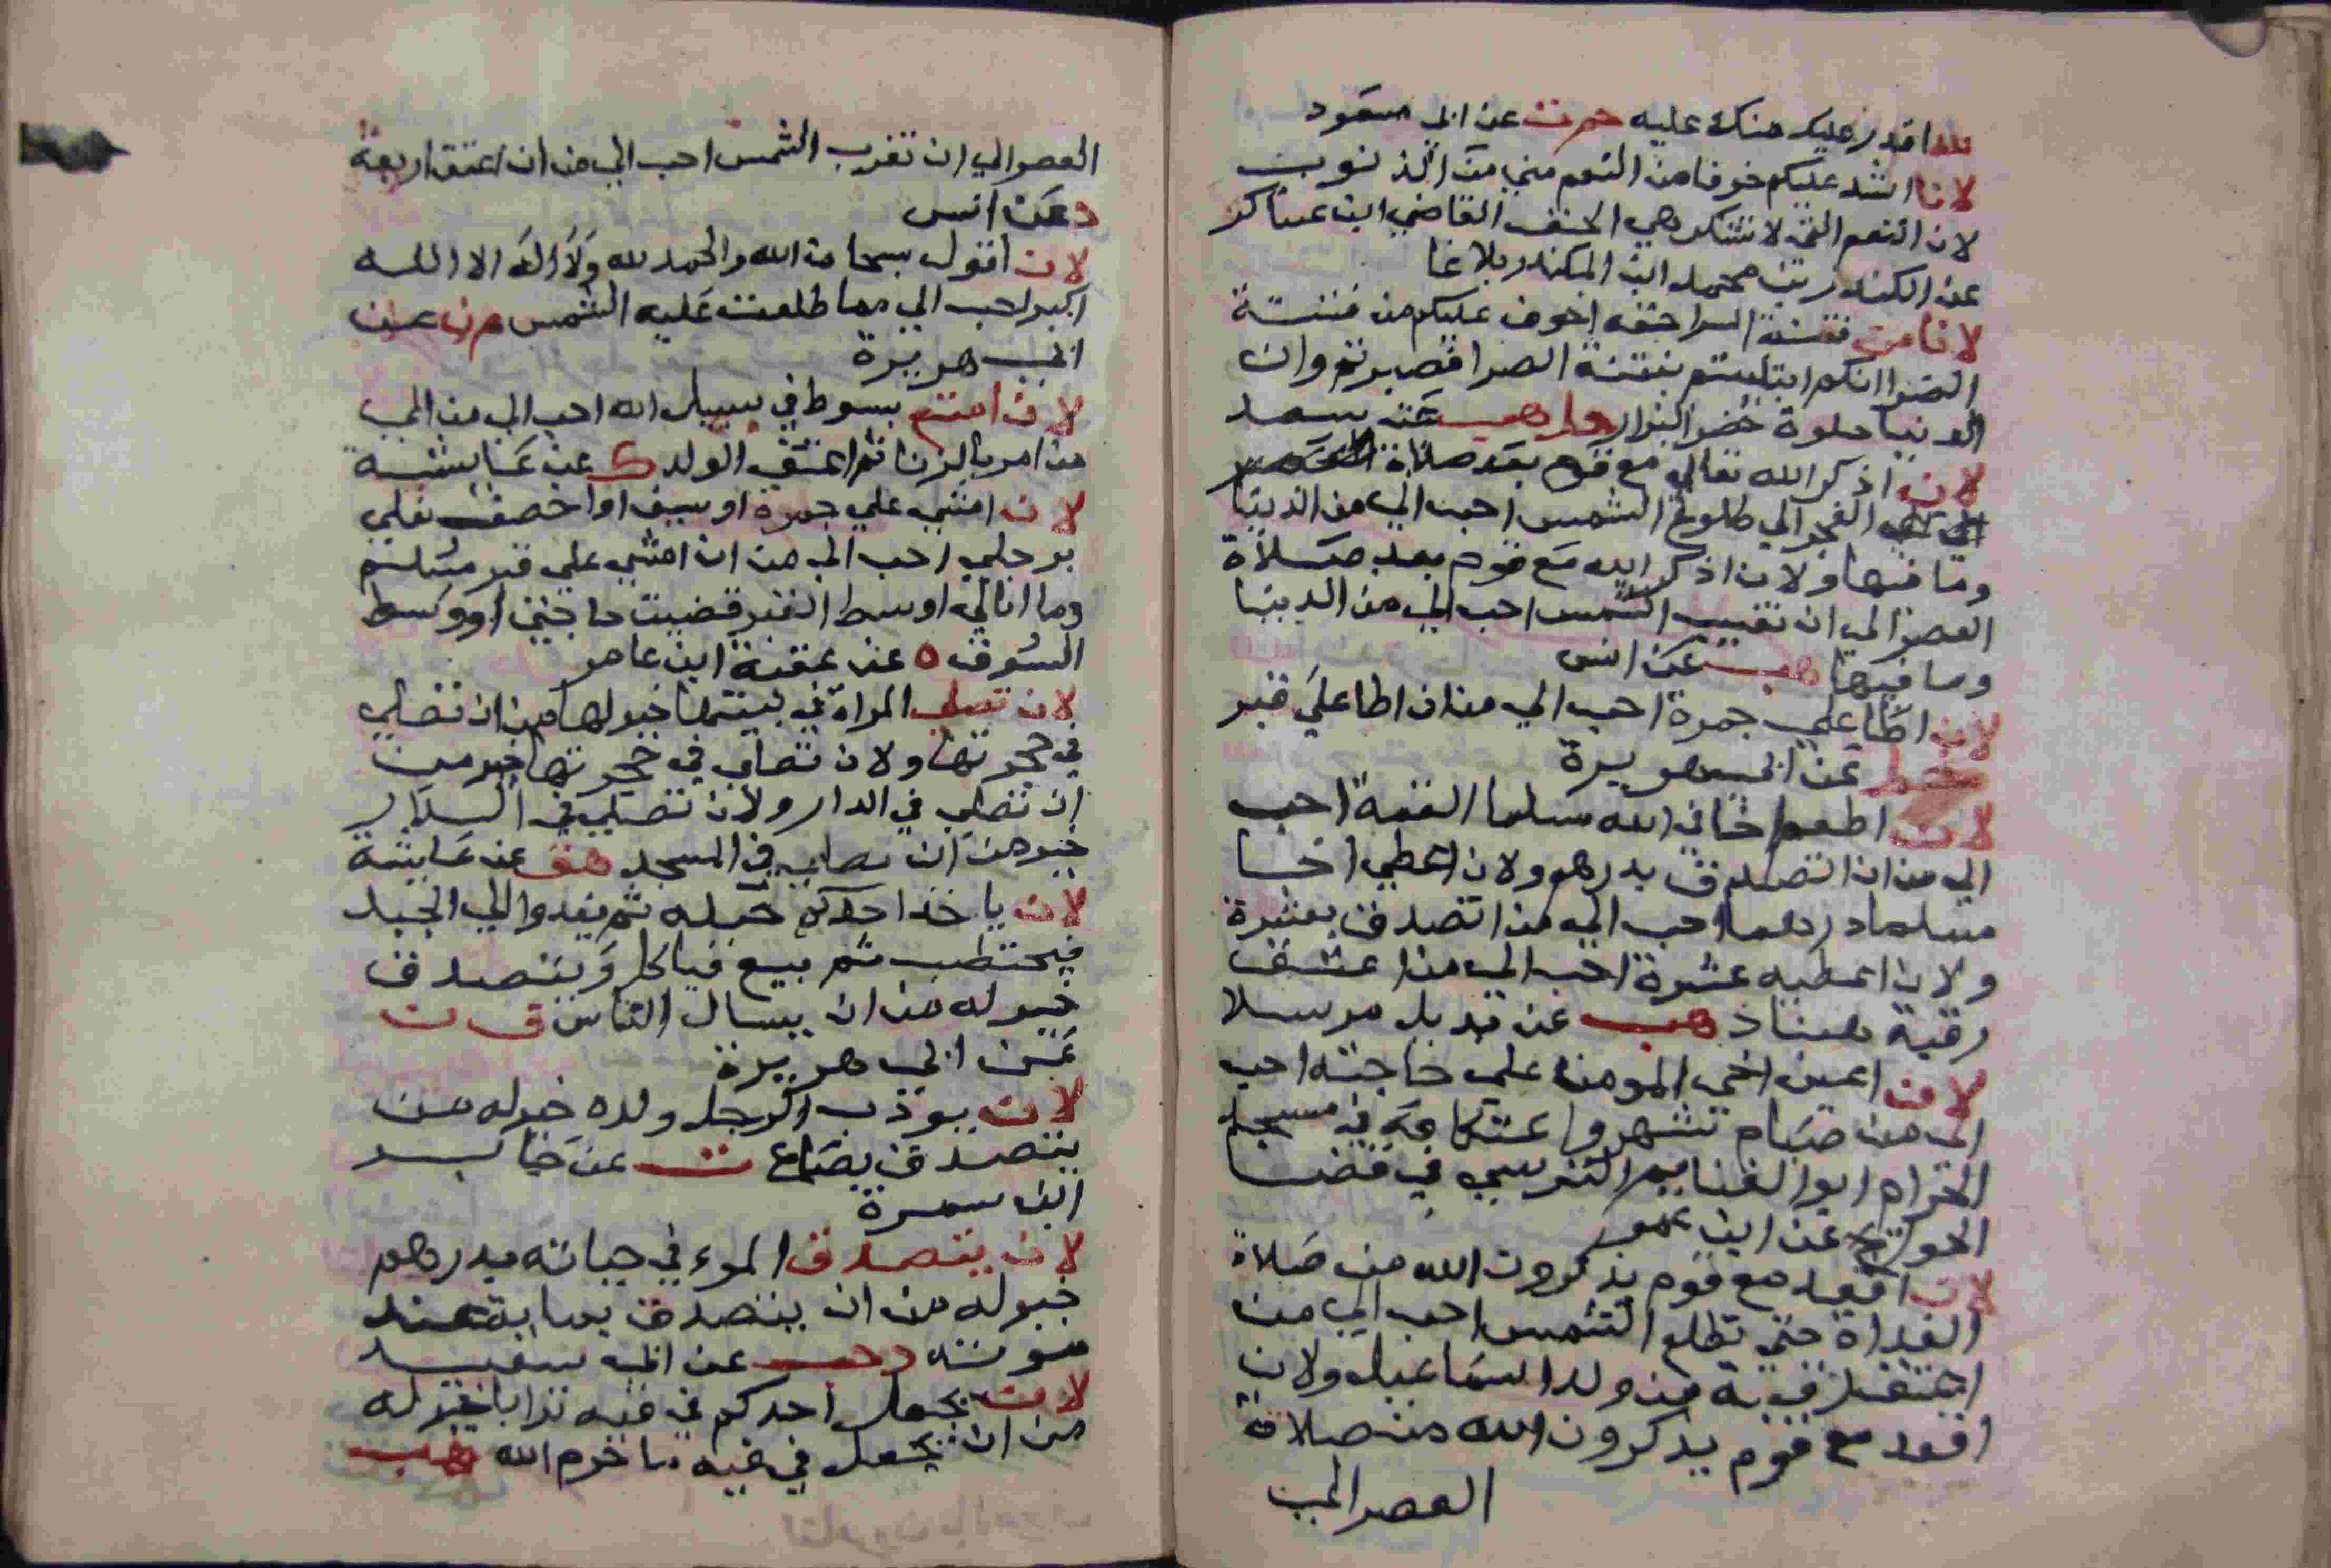 لله اقدر عليك منك عليه حم ت عن ابي مسعود
لانا اشد عليكم خوفا من النعم مني من الذنوب
لان النعم التي لا تشكر هي الحتف القاضي ابن عساكر
عن المكندر بن محمد ابن المكندر بلاغا
لانا من فتنة السرا حتفه اخوف عليكم من فتنة
الضرا انكم ابتليتم بفتنة الضرا فصبرتم وان
الدنيا حلوة خضر البزار حل هب عن سعد
لان اذكر الله تعالي مع قوم بعد صلاة
الفجر الي طلوع الشمس احب الي من الدنيا
وما فيها ولان اذكر الله مع قوم بعد صلاة
العصر الي ان تغيب الشمس احب الي من الدنيا
وما فيها هب عن انس
لان اطا علي جمرة احب الي من ان اطا علي قبر
خط عن ابي هريرة
لان اطعم اخا في الله مسلما لقمة احب
الي من ان اتصدق بدرهم ولان اعطي اخا
مسلما درهما احب الي من اتصدق بعشرة
ولان اعطيه عشرة احب الي من اعتق
رقبة هناد هب عن بديل مرسلا
لان اعين اخي المومن علي حاجته احب
الي من صيام شهر واعتكافه في مسجد
الحرام ابوا الغنايم النرسي في قضا
الحوايج عن ابن عمر
لان اقعد مع قوم يذكرون الله من صلاة
الغداة حتي تطلع الشمس احب الي من
اعتق اربعة من ولد اسماعيل ولان
اقعد مع قوم يذكرون الله من صلاة
العصر الي
العصر الي ان تغرب الشمس احب الي من ان اعتق اربعة
د عن انس
لان اقول سبحان الله والحمد لله ولا اله الا الله
اكبر احب الي مما طلعت عليه الشمس م ت عن
ابي هريرة
لان امتع بسوط في سبيل الله احب الي من الي
من امر بالزنا ثم اعتق الولد ك عن عايشة
لان امشي علي جمرة او سيف او اخصف نعلي
برجلي احب الي من ان امشي علي قبر مسلم
وما ابالي اوسط القبر قضيت حاجتي او وسط
السوق ه عن عقبة ابن عامر
لان تصلي المراة في بيتها خير لها من ان تصلي
في حجرتها ولان تصلي في حجرتها خير من
ان تصلي في الدار ولان تصلي في الدار
خير من ان تصلي في المسجد هق عن عايشة
لان ياخذ احدكم حبله ثم يغدوا الي الجبل
فيحتطب ثم يبيع فياكل ويتصدق
خير له من ان يسال الناس ق ن
عن ابي هريرة
لان يوذب الرجل ولده خير له من
يتصدق بصاع ت عن جابر
ابن سمرة
لان يتصدق المرء في حياته بدرهم
خير له من ان يتصدق بماية عند
موته د حب عن ابي سعيد
لان يجعل احدكم في فيه ترابا خير له
من ان يجعل في فيه ما حرم الله هب